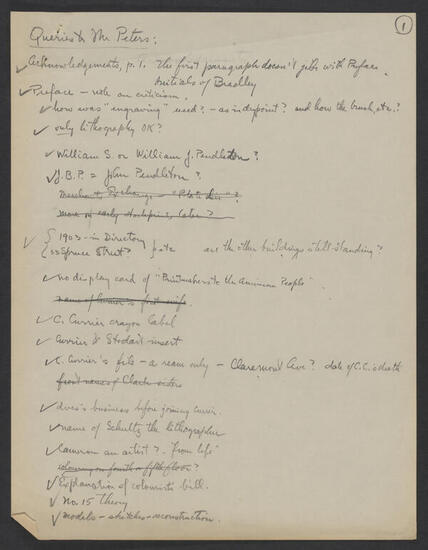 1
Queries to Mr Peters:
✓ Acknowledgements, p. 1. The first paragraph doesn't jibe with Preface.
initials of Bradley
✓ Preface — note on criticism.
✓ how was "engraving" used? — as in drypoint? and how the brush, etc.?
✓ only lithography OK?
✓ William S. or William J. Pendleton?
✓ J.B.P. = John Pendleton?
Merchants Exchange — ?
more on early stockpiles, later?
✓ { 1903 — in Directory
{ 33 Spruce Street? are the other buildings still standing?
✓ no display card of "Printmakers to the American People"
name of Currier's first wife.
✓ C. Currier crayon label
✓ Currier & Stodart insert
✓ C. Currier's file — a ream only — Claremont Ave? date of C.C.'s death
front names of Clark sisters
✓ Ives's business before joining Currier.
✓ name of Schultz the lithographer
✓ Cameron an artist? "from life"
colouring on fourth or fifth floor?
✓ Explanation of colourists bill.
✓ No. 15 theory
✓ models — sketches — reconstruction.